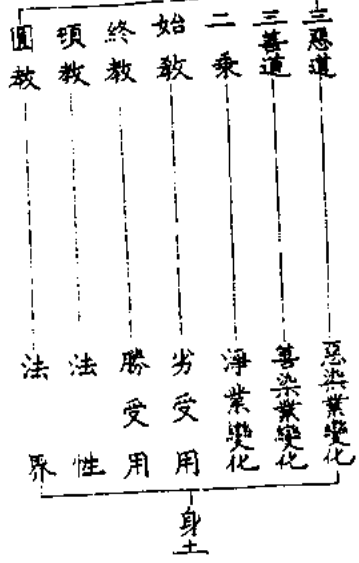 三惡道 惡染業變化
三善道 善染業變化
二乘 淨業變化
始教 劣受用
終教 勝受用
頓教 法性
圓教 法界
身土